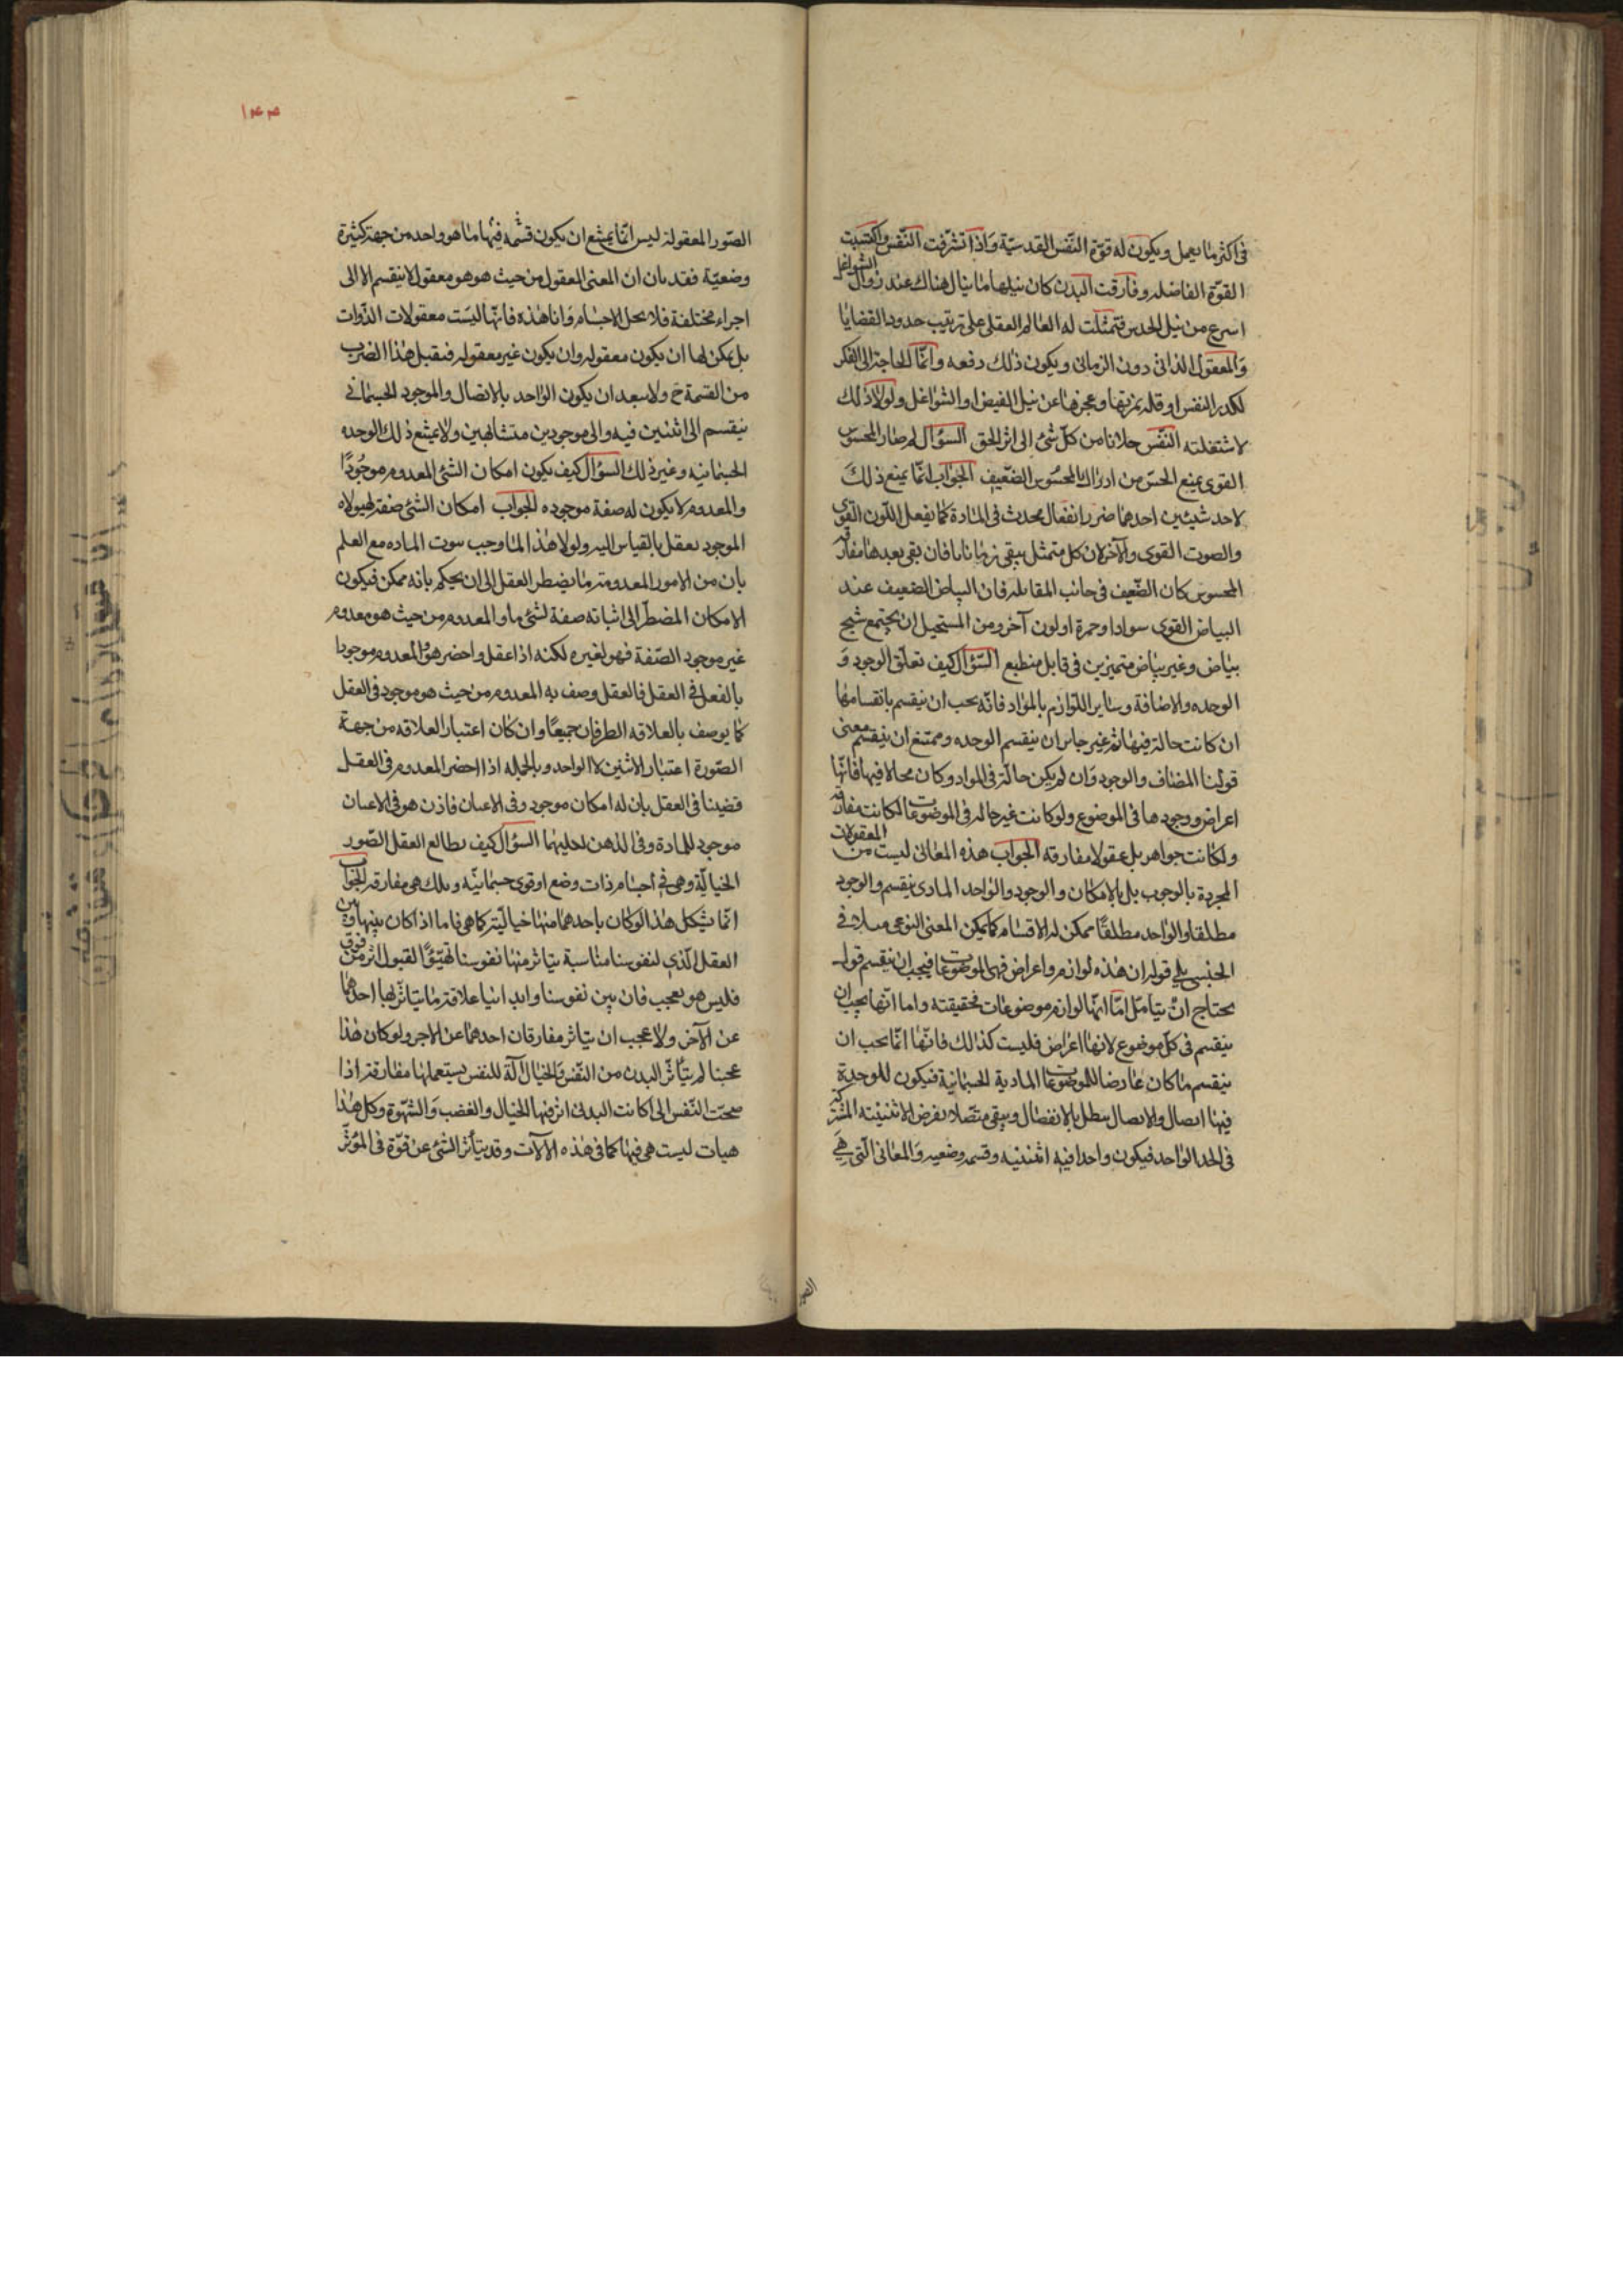 في اكثر ما يعمل ويكون له قوّة النّفس القدسيّة وَاذا تشرّفت النّفس واكتسبت
القوّة الفاضله وفارقت البدن كان نيلها ما ينال هناك عند زوال الشواغل
اسرع من نيل الحدس فتمثّلت له العالم العقلى على ترتيب حدود القضايا
وَالمعقول الذاتى دون الزمانى ويكون ذلك دفعه وانّما الحاجة الى الفكر
لكدر النفس او قله تمرنها وعجزها عن نيل الفيض او الشواغل ولولا ذلك
لاشتغلته النّفس جلانا من كلّ شئ الى اثر الحق السؤال لم صار المحسوس
القوى يمنع الحسّ من ادراك المحسُوس الضّعيف الجوَاب انّما يمنع ذلك
لاحد شيئين احدهما ضرر انفعال محدث فى المادة كما يفعل اللّون القوى
والصوت القوى والآخر لان كل متمثل يبقى زمانا ما فان بقى بعدها مفارقه
المحسوس كان الضّعيف فى جانب المقابله فان البياض الضعيف عند
البياض القوى سوادا وحمرة او لون آخر ومن المستحيل ان يجتمع شبح
بياض وغير بياض متميزين فى قابل منطبع السّؤال كيف تعلّق الوجود وَ
الوحده والاضافة وساير اللّوازم بالموَاد فانّه يجب ان ينقسم بانقسامها
ان كانت حالة فيها ثم غير جايز ان ينقسم الوحده وممتنع ان ينقسم معنى
قولنا المضاف والوجود وَان لم يكن حالّة فى المواد وكان محالا فيها فانّها
اعراض ووجودها فى الموضوع ولو كانت غير حاله فى الموضوعات لكانت مفارقه
ولكانت جواهر بل عقولا مفارقه الجواب هذه المعانى ليست من المعقولات
المجردة بالوجوب بل بالامكان والوجود والواحد المادى ينقسم والوجود
مطلقا والواحد مطلقًا ممكن له الاقسام كما يمكن المعنى النوعى مثلا فى
الجنسى بلى قوله ان هذه لوازم واعراض فهى الموضوعات فيجب ان ينقسم قول
يحتاج انْ يتامّل امّا انّها لوازم موضوعات فحقيقته واما انّها يجب ان
ينقسم فى كلّ موضوع لانها اعراض فليست كذالك فانّها انّما يجب ان
ينقسم ما كان عارضا للموضوعات المادية الجسمانية فيكون للوحدة
فيها اتصال والاتصال يبطل بالانفصال ويبقى متّصلا بفرض الاثنينيّته المشتركه
فى الحد الواحد فيكون واحدا فيه اثنينيه وقسمه وضعيه وَالمعَانى الّتى هَى
١٤٤
الصّور المعقولة ليس انّما يمتنع ان يكون قسمة فيها ما هو واحد من جهة كثيرة
وضعيّة فقد بان ان المعنى المعقول من حيث هو هو معقول لا ينقسم الا الى
اجزاء مختلفة فلا يحل الاجسام وَاما هذه فانّها ليسَت معقولات الذّوات
بل يمكن لها ان يكون معقوله وان يكون غير معقوله فنقبل هذا الضرب
من القسمة ح ولا يبعد ان يكون الواحد بالاتصال والموجود الجسمَانى
ينقسم الى اثنين فيه والى موجودين متشابهين ولا يمتنع ذلك الوحده
الجسمانيه وغير ذلك السؤال كيف يكون امكان الشئ المعدوم موجُودًا
والمعدوم لا يكون له صفة موجوده الجواب امكان الشئ صفة لهيولاه
الموجود بعقل بالقياس اليه ولولا هذا لما وجب سوت الماده مع العلم
بان من الامور المعدومة ما يضطر العقل الى ان يحكم بانه ممكن فيكون
الامكان المضطرّ الى اثباته صفة لشئ ما والمعدوم من حيث هو معدوم
غير موجود الصّفة فهو لغيره لكنه اذا عقل واحضر هوُ المعدوم موجودا
بالفعل فى العقل فالعقل وصف به المعدوم من حيث هو موجود فى العقل
كما يوصف بالعلاقه الطرفان جميعًا وان كان اعتبار العلاقه من جهة
الصّورة اعتبار الاثنين لا الواحد وبالجمله اذا احضر المعدوم فى العقل
قضينا فى العقل بان له امكان موجود وفى الاعيان فاذن هو فى الاعيان
موجود للمادة وفى الذهن لحليهما السؤال كيف يطالع العقل الصّور
الخياليّة وهى فى اجسام ذات وضع او قوى جسمانيّه وتلك هى مفارقه الجَواب
انّما يشكل هذا لو كان باحدهما منها خياليّته كما هى فاما اذا كان بينها وبين
العقل الّذى لنفوسنا مناسبة يتاثر منها نفوسنا تهيّؤًا لقبول اثر من فوق
فليس هو بعجب فان بين نفوسنا وابداننا علاقة ما يتاثّر لها احدهما
عن الآخر ولا عجب ان يتاثر مفارقان احدهما عن الاخر ولو كان هذا
عجبا لم يتأثّر البدن من النّفس وَالخيال آلة للنفس يستعملها مفارقة اذا
سحت النّفس الى اكانت البدنى اثر فيها الخيال والغضب وَالشّهوة وكل هذا
هيات ليست هى فيها كما فى هذه الآلات وقد يتأثر الشئ عن قوّة فى المؤثّر
الصور